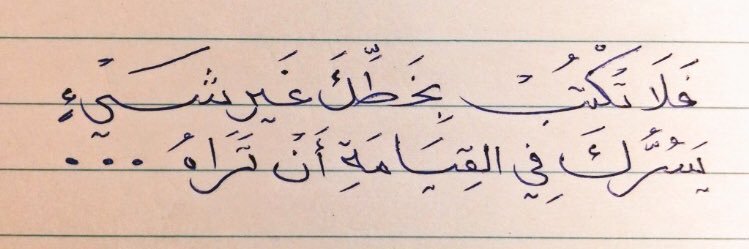 فَلَا تَكْتُبْ بِخَطِّكَ غَيرَ شَيْءٍ
يَسُرُّكَ فِي القِيَامَةِ أَنْ تَرَاهُ ...